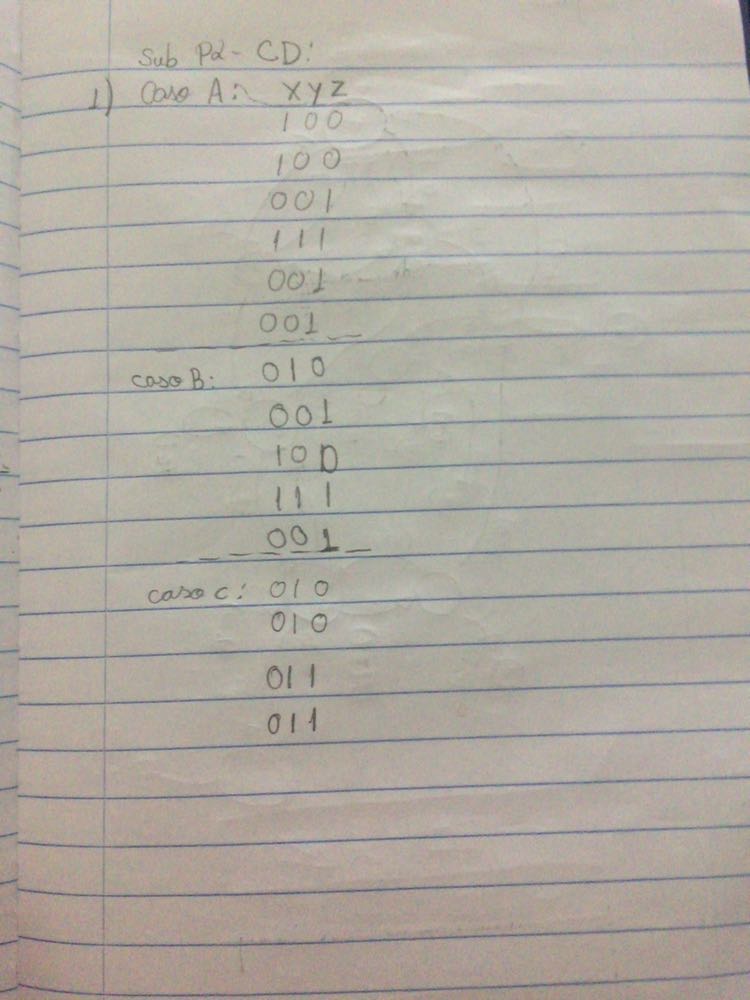 Sub P2- CD:
1) Caso A: XYZ
100
100
001
111
001
001
caso B: 010
001
100
111
001
caso c: 010
010
011
011